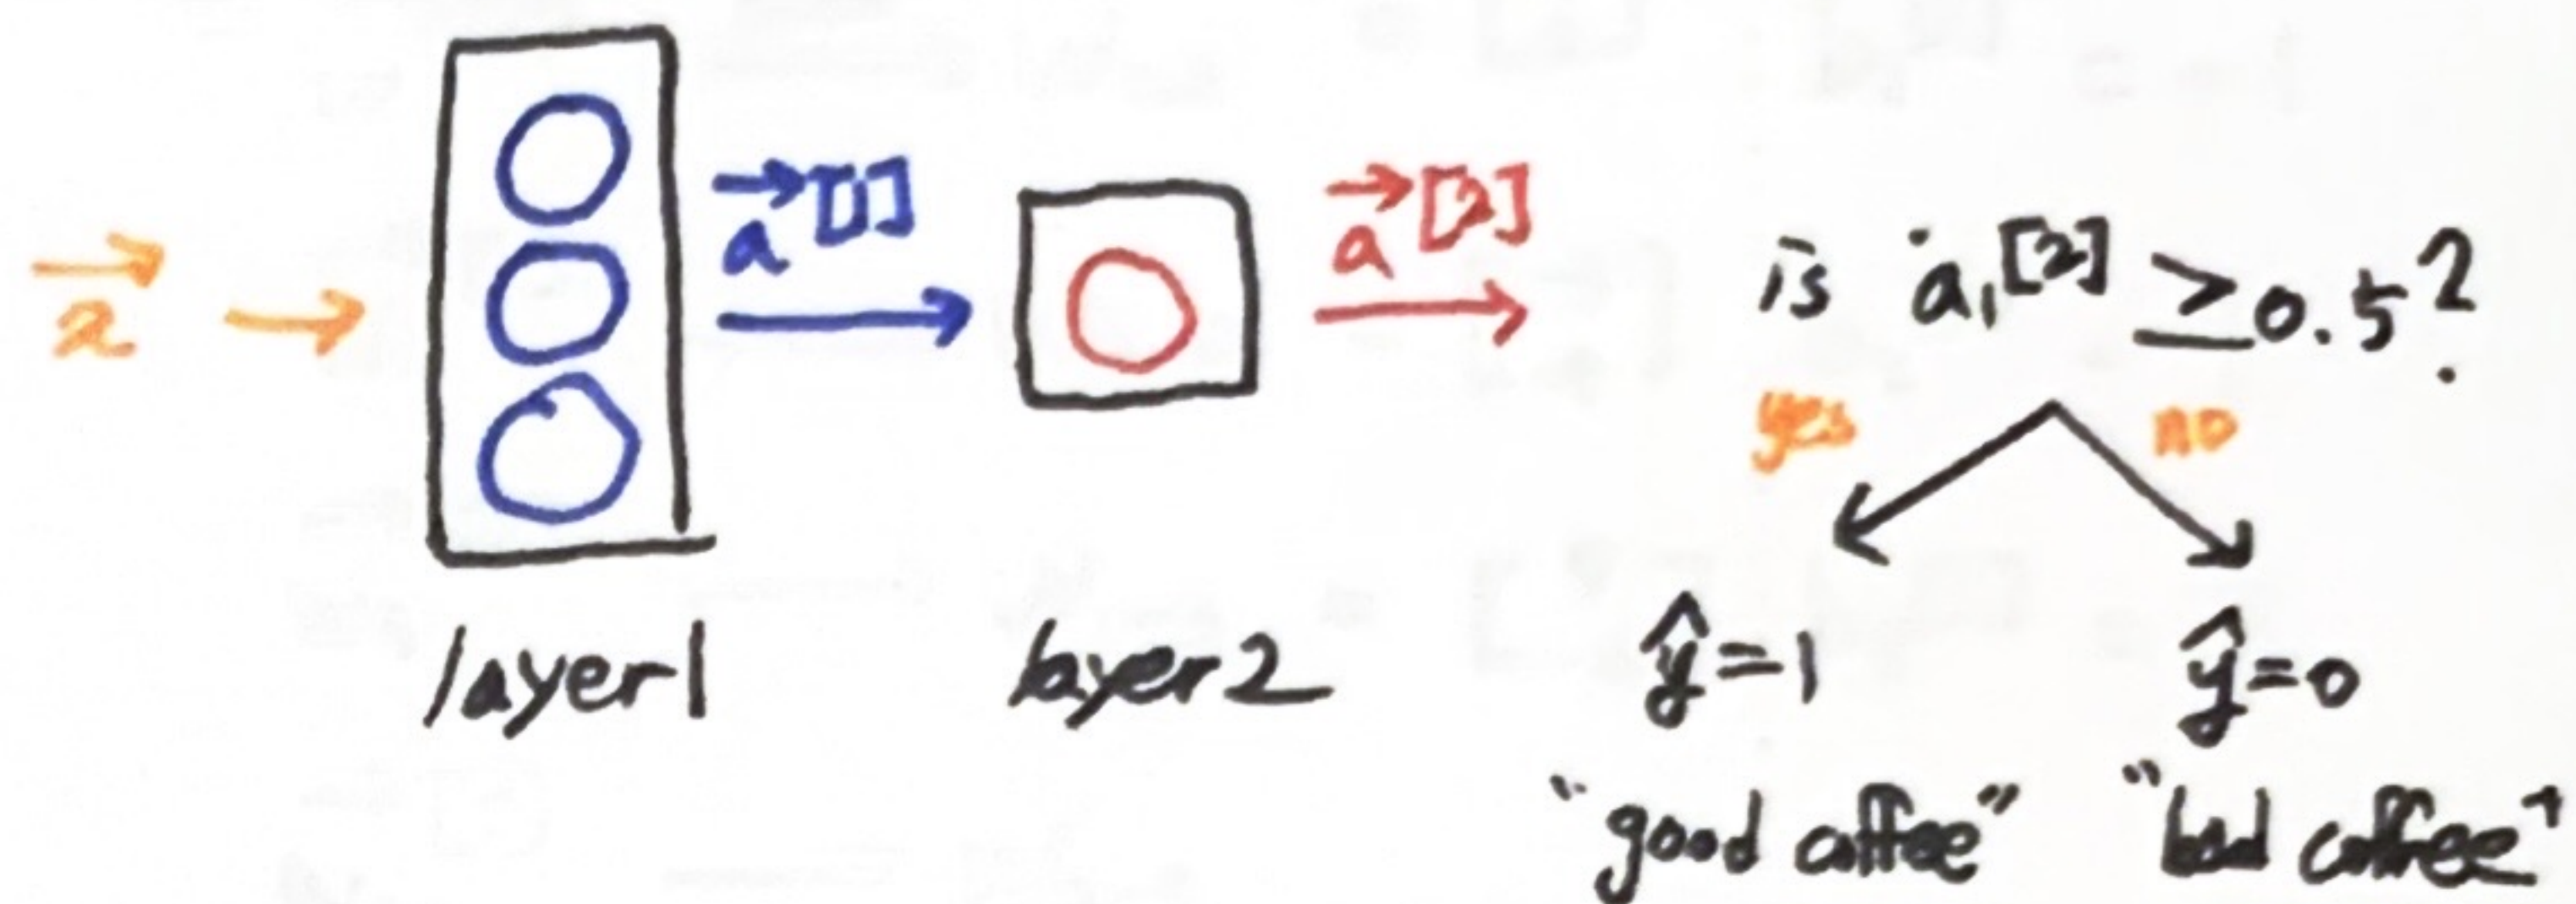 x⃗
a⃗^[1]
a⃗^[2]
is a₁^[2] ≥ 0.5?
yes
no
layer1
layer2
ŷ=1
ŷ=0
"good coffee"
"bad coffee"